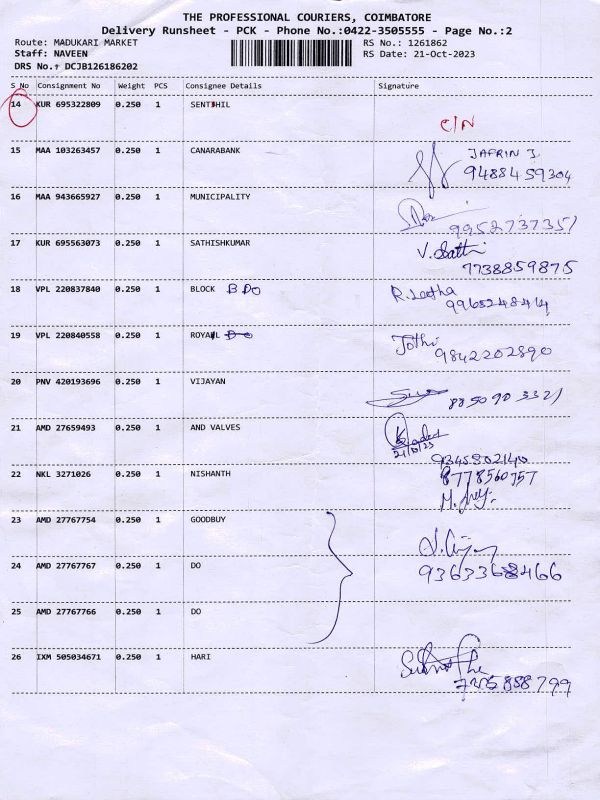 THE PROFESSIONAL COURIERS, COIMBATORE
Delivery Runsheet - PCK - Phone No.:0422-3505555 - Page No.:2
Route: MADUKARI MARKET RS No.: 1261862
Staff: NAVEEN RS Date: 21-Oct-2023
DRS No.: DCJB126186202
S No Consignment No Weight PCS Consignee Details Signature
14 KUR 695322809 0.250 1 SENTHIL
C/N
15 MAA 103263457 0.250 1 CANARABANK JAFRIN J
9488459304
16 MAA 943665927 0.250 1 MUNICIPALITY
9952737351
17 KUR 695563073 0.250 1 SATHISHKUMAR V. Sathi
7738859875
18 VPL 220837840 0.250 1 BLOCK BDO R. Leetha
9965248414
19 VPL 220840558 0.250 1 ROYAL Jothi
9842202890
20 PNV 420193696 0.250 1 VIJAYAN
8850903321
21 AMD 27659493 0.250 1 AND VALVES
21/10/23
9345802140
22 NKL 3271026 0.250 1 NISHANTH 8778560757
23 AMD 27767754 0.250 1 GOODBUY
24 AMD 27767767 0.250 1 DO 9363368466
25 AMD 27767766 0.250 1 DO
26 IXM 505034671 0.250 1 HARI